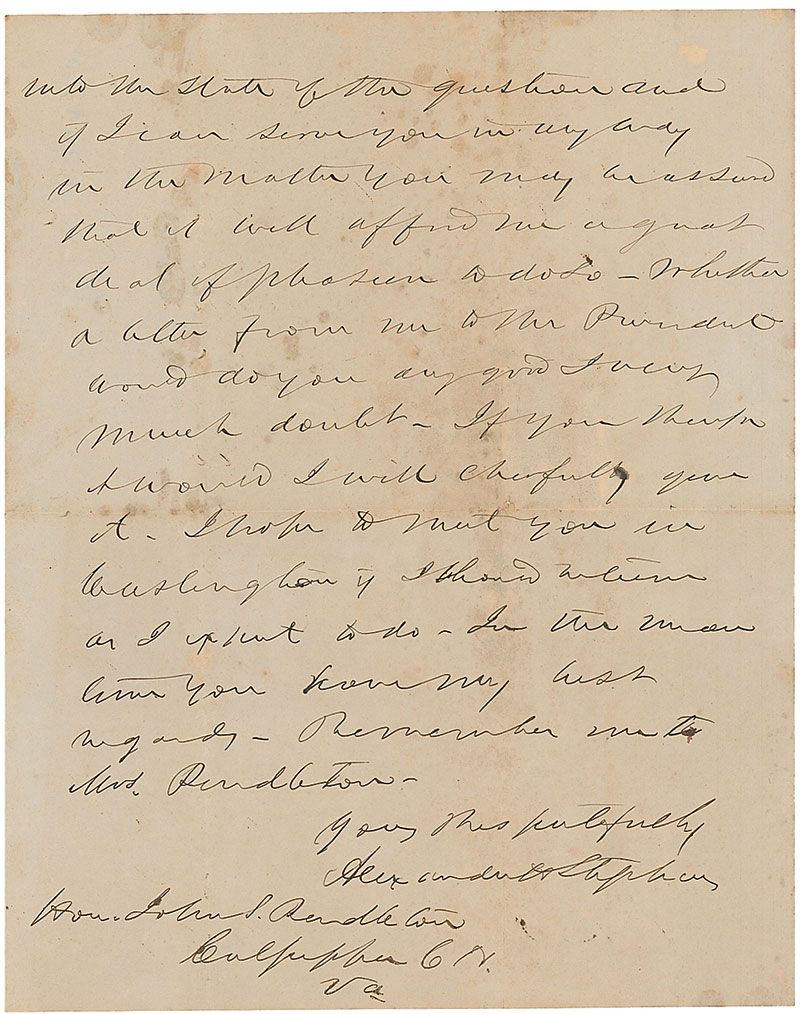 into the state of the question and
if I can serve you in any way
in the matter you may be assured
that it will afford me a great
deal of pleasure to do so – Whether
a letter from me to the President
would do you any good I very
much doubt – If you think
it would I will cheerfully give
it – I hope to meet you in
Washington if I should return
as I expect to do – In the mean
time you have my best
regards – Remember me to
Mrs. Pendleton –
Yours respectfully
Alexander H Stephens
Hon. John S. Pendleton
Culpepper C H.
Va